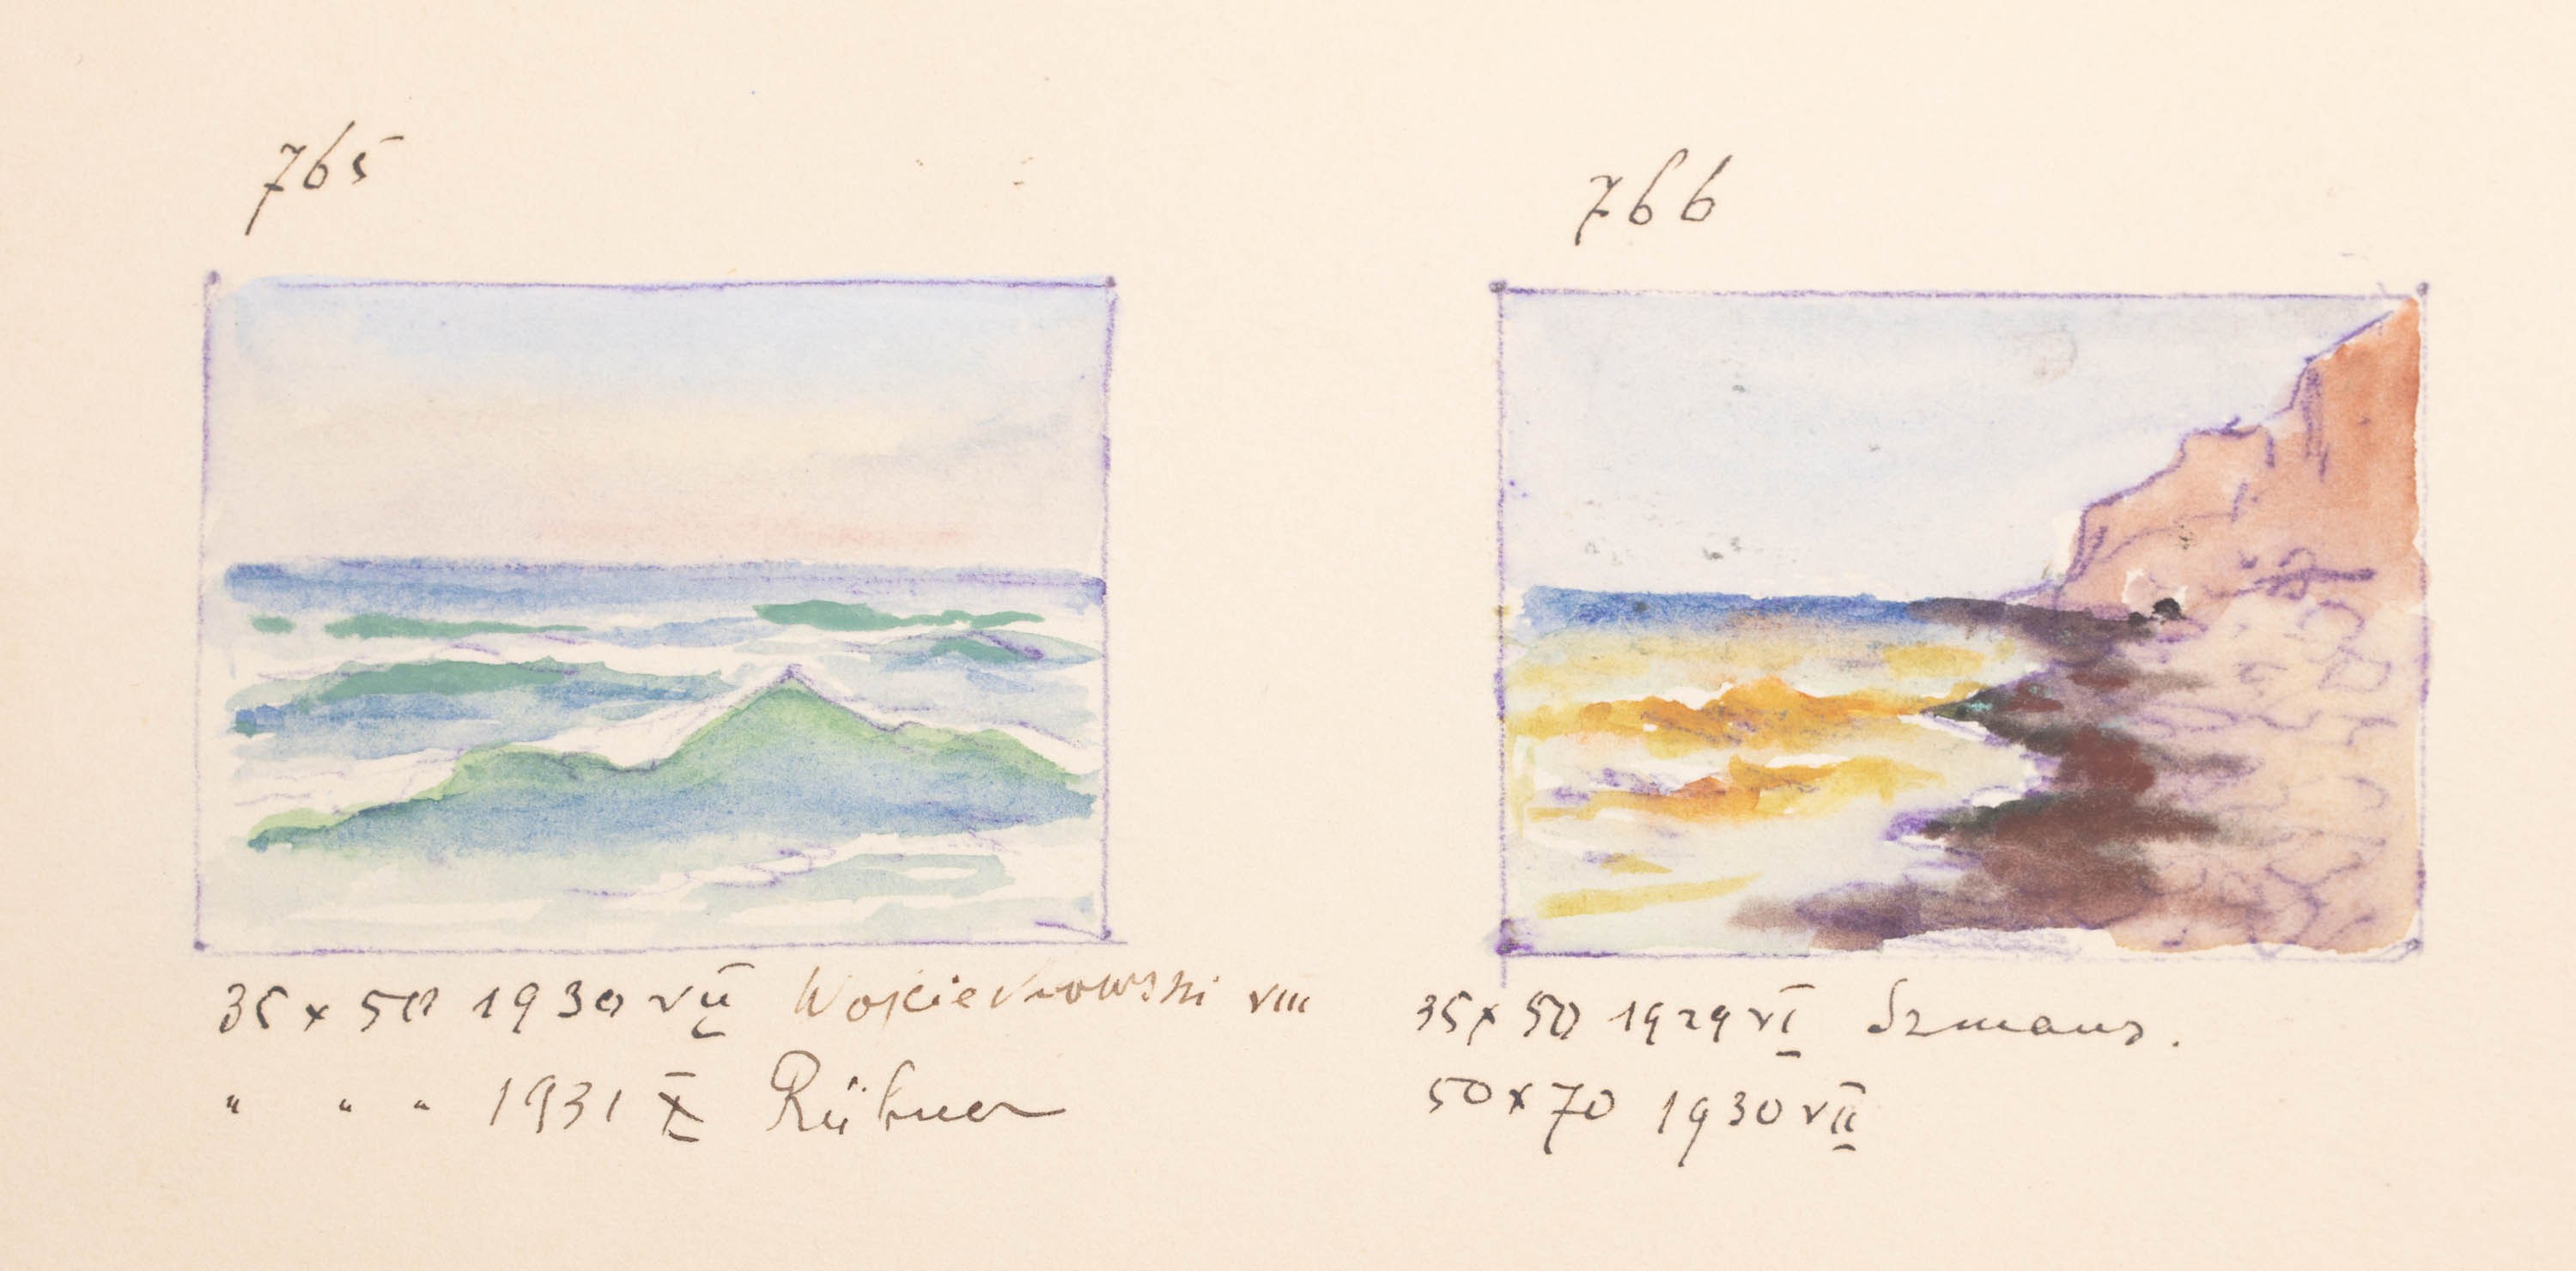 765
766
35 x 50 1930 VII Wojciechowski VIII
" " " 1931 X Rübner
35 x 50 1929 VI
50 x 70 1930 VII